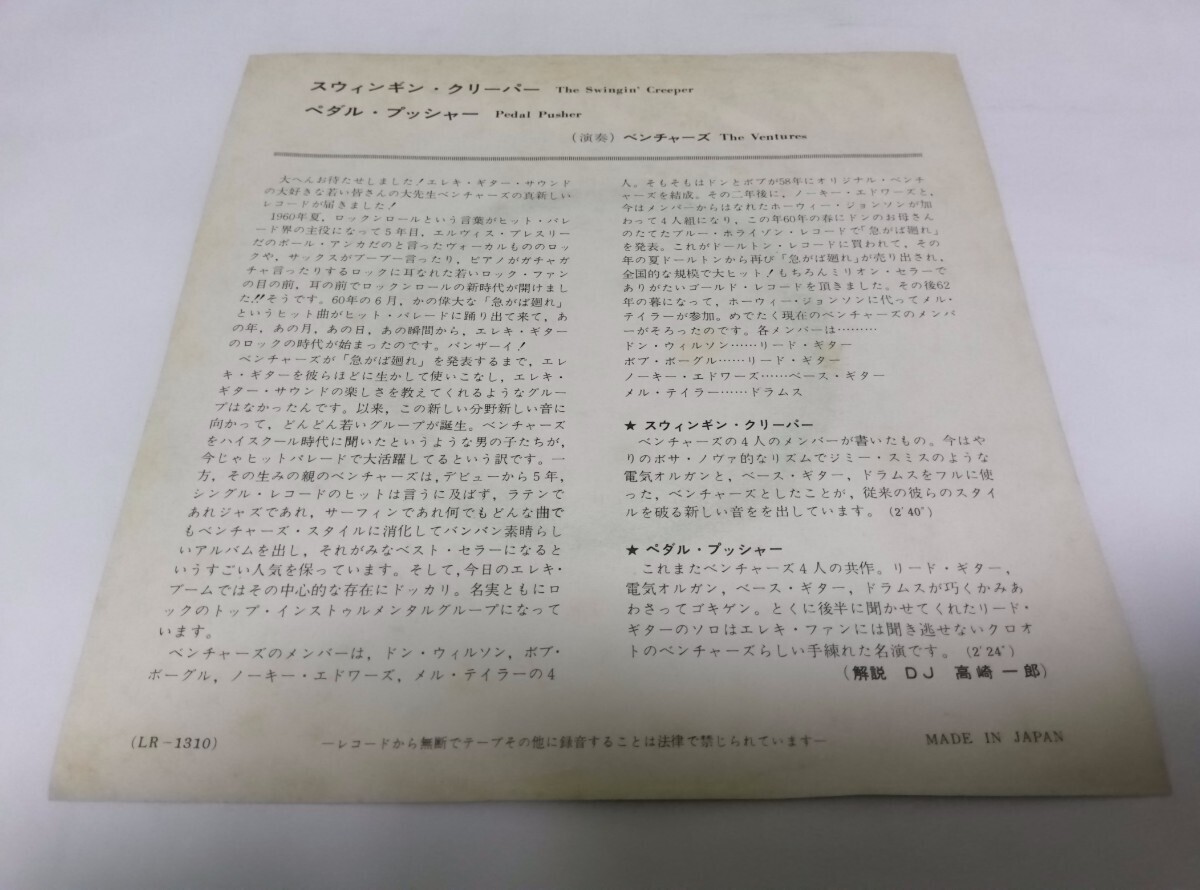 スウィンギン・クリーパー The Swingin' Creeper
ペダル・プッシャー Pedal Pusher
(演奏) ベンチャーズ The Ventures
大へんお待たせしました!エレキ・ギター・サウンド
の大好きな若い皆さんの大先生ベンチャーズの真新しい
レコードが届きました!
1960年夏,ロックンロールという言葉がヒット・パレ
ード界の主役になって5年目,エルヴィス・プレスリー
だのポール・アンカだのと言ったヴォーカルもののロッ
クや,サックスがブーブー言ったり,ピアノがガチャガ
チャ言ったりするロックに耳なれた若いロック・ファン
の目の前,耳の前でロックンロールの新時代が開けまし
た!!そうです。60年の6月,かの偉大な「急がば廻れ」
というヒット曲がヒット・パレードに踊り出て来て,あ
の年,あの月,あの日,あの瞬間から,エレキ・ギター
のロックの時代が始まったのです。バンザーイ!
ベンチャーズが「急がば廻れ」を発表するまで,エレ
キ・ギターを彼らほどに生かして使いこなし,エレキ・
ギター・サウンドの楽しさを教えてくれるようなグルー
プはなかったんです。以来,この新しい分野新しい音に
向かって,どんどん若いグループが誕生。ベンチャーズ
をハイスクール時代に聞いたというような男の子たちが,
今じゃヒットパレードで大活躍してるという訳です。一
方,その生みの親のベンチャーズは,デビューから5年,
シングル・レコードのヒットは言うに及ばず,ラテンで
あれジャズであれ,サーフィンであれ何でもどんな曲で
もベンチャーズ・スタイルに消化してバンバン素晴らし
いアルバムを出し,それがみなベスト・セラーになると
いうすごい人気を保っています。そして,今日のエレキ・
ブームではその中心的な存在にドッカリ。名実ともにロ
ックのトップ・インストゥルメンタルグループになって
います。
ベンチャーズのメンバーは,ドン・ウィルソン,ボブ・
ボーグル,ノーキー・エドワーズ,メル・テイラーの4
人。そもそもはドンとボブが58年にオリジナル・ベンチ
ャーズを結成。その二年後に,ノーキー・エドワーズと,
今はメンバーからはなれたホーウィー・ジョンソンが加
わって4人組になり,この年60年の春にドンのお母さん
のたてたブルー・ホライゾン・レコードで「急がば廻れ」
を発表。これがドールトン・レコードに買われて,その
年の夏ドールトンから再び「急がば廻れ」が売り出され,
全国的な規模で大ヒット!もちろんミリオン・セラーで
ありがたいゴールド・レコードを頂きました。その後62
年の暮になって,ホーウィー・ジョンソンに代ってメル・
テイラーが参加。めでたく現在のベンチャーズのメンバ
ーがそろったのです。各メンバーは………
ドン・ウィルソン……リード・ギター
ボブ・ボーグル……リード・ギター
ノーキー・エドワーズ……ベース・ギター
メル・テイラー……ドラムス
★ スウィンギン・クリーパー
ベンチャーズの4人のメンバーが書いたもの。今はや
りのボサ・ノヴァ的なリズムでジミー・スミスのような
電気オルガンと,ベース・ギター,ドラムスをフルに使
った,ベンチャーズとしたことが,従来の彼らのスタイ
ルを破る新しい音をを出しています。(2'40")
★ ペダル・プッシャー
これまたベンチャーズ4人の共作。リード・ギター,
電気オルガン,ベース・ギター,ドラムスが巧くかみあ
わさってゴキゲン。とくに後半に聞かせてくれたリード・
ギターのソロはエレキ・ファンには聞き逃せないクロオ
トのベンチャーズらしい手練れた名演です。(2'24")
(解説 DJ 高崎一郎)
(LR-1310)
—レコードから無断でテープその他に録音することは法律で禁じられています—
MADE IN JAPAN